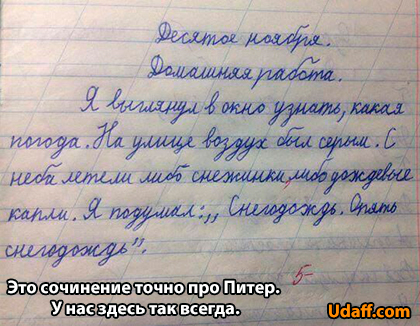 Десятое ноября.
Домашняя работа.
Я выглянул в окно узнать, какая
погода. На улице воздух был серым. С
неба летели либо снежинки, либо дождевые
капли. Я подумал: „ Снегодождь. Опять
снегодождь".
5-
Это сочинение точно про Питер.
У нас здесь так всегда.
Udaff.com